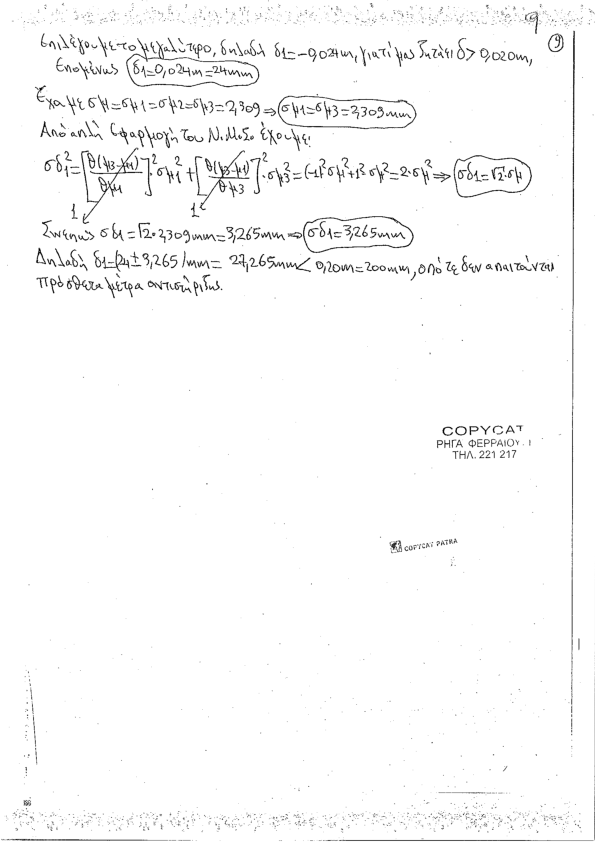 9
9
Επιλέγουμε το μεγαλύτερο, δηλαδή δ1=-0,024m, γιατί μας ζητάει δ>0,020m,
Επομένως δ1=0,024m=24mm
Έχουμε σμ=σμ1=σμ2=σμ3=2,309⇒σμ1=σμ3=2,309mm
Από απλή εφαρμογή του Ν.Μ.Σφ έχουμε:
σδ1²=[θ(μ3-μ1)/θμ1]²·σμ1²+[θ(μ3-μ1)/θμ3]²·σμ3²=(-1)²σμ²+1²σμ²=2·σμ²⇒σδ1=√2·σμ
1 1
Συνεπώς σδ1=√2·2,309mm=3,265mm⇒σδ1=3,265mm
Δηλαδή δ1=(24±3,265)mm=27,265mm<0,20m=200mm, οπότε δεν απαιτούνται
πρόσθετα μέτρα αντιστήριξης.
COPYCAT
ΡΗΓΑ ΦΕΡΡΑΙΟΥ
ΤΗΛ. 221 217
COPYCAT PATRA